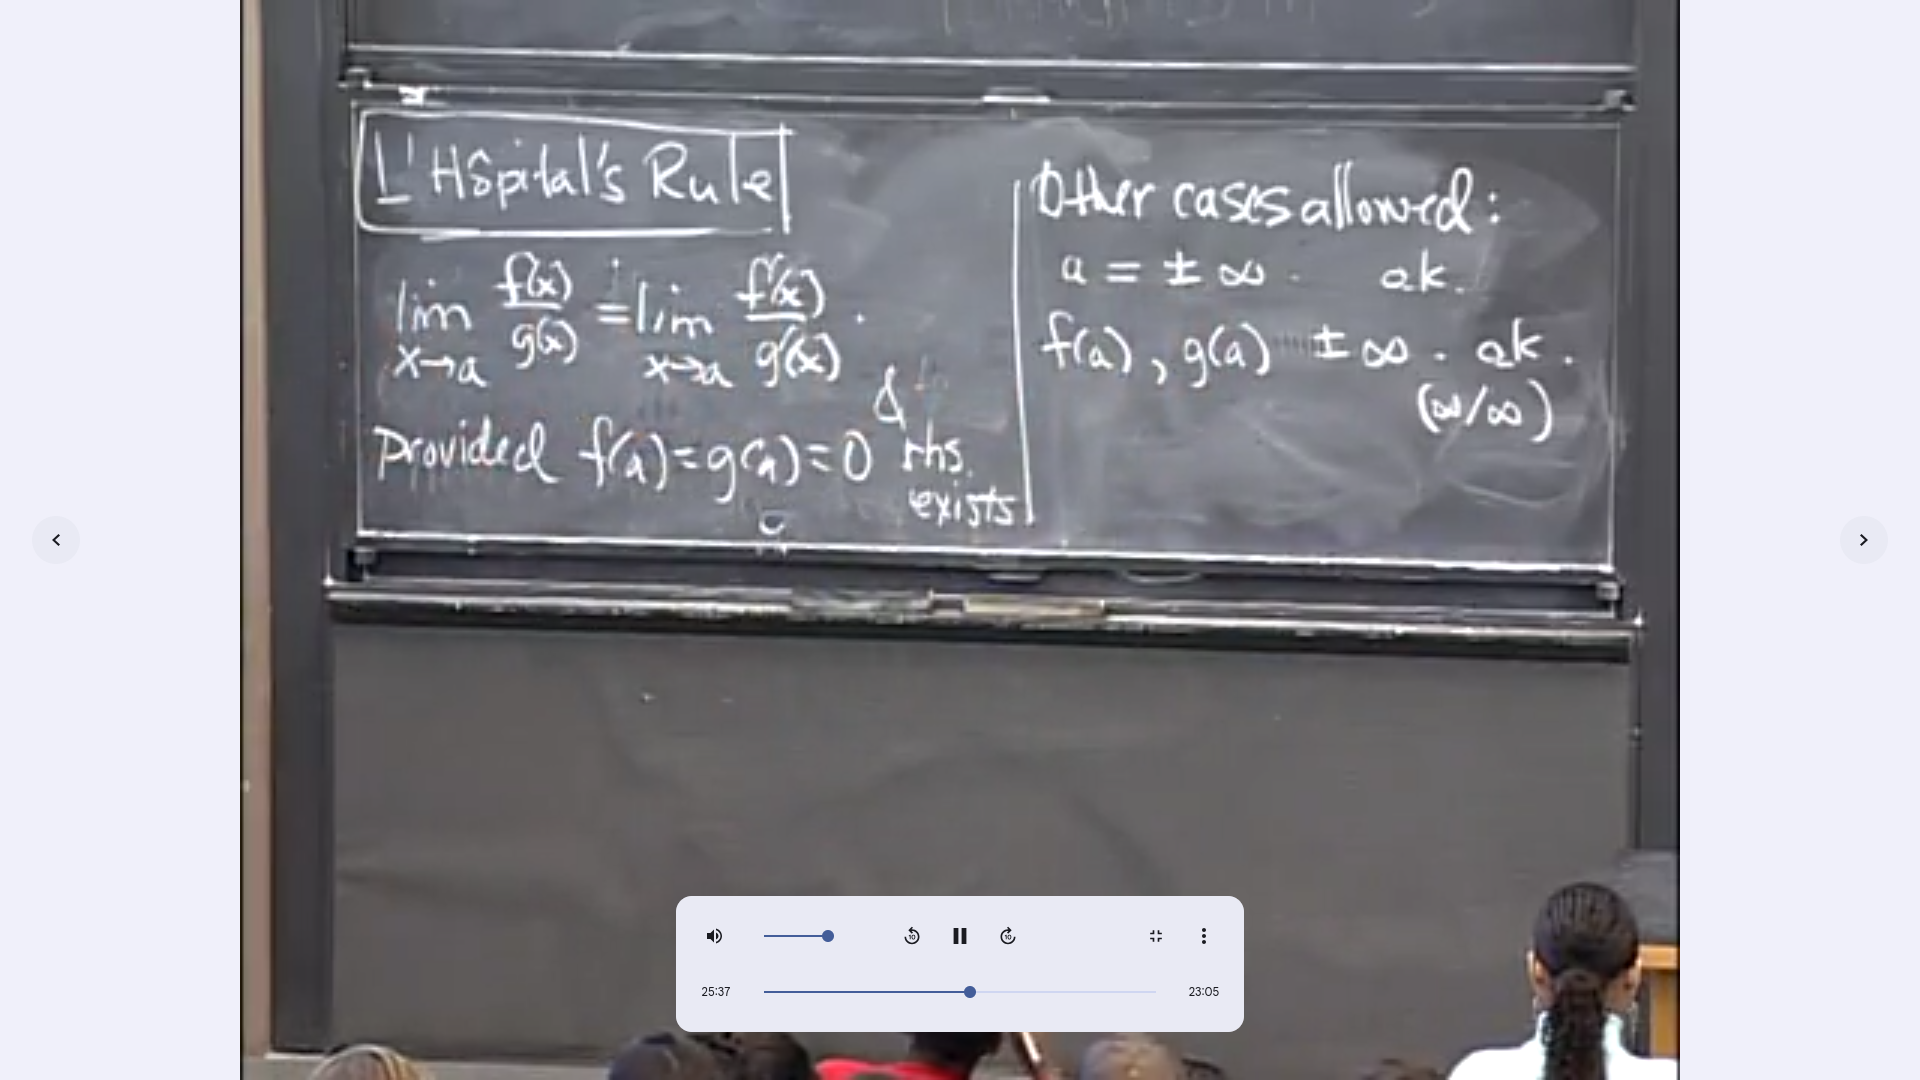 L'Hôpital's Rule
lim x→a f(x)/g(x) = lim x→a f'(x)/g'(x).
Provided f(a)=g(a)=0 & rhs. exists
Other cases allowed:
a = ± ∞. ok.
f(a), g(a) ± ∞. ok.
(∞/∞)
10
10
25:37
23:05